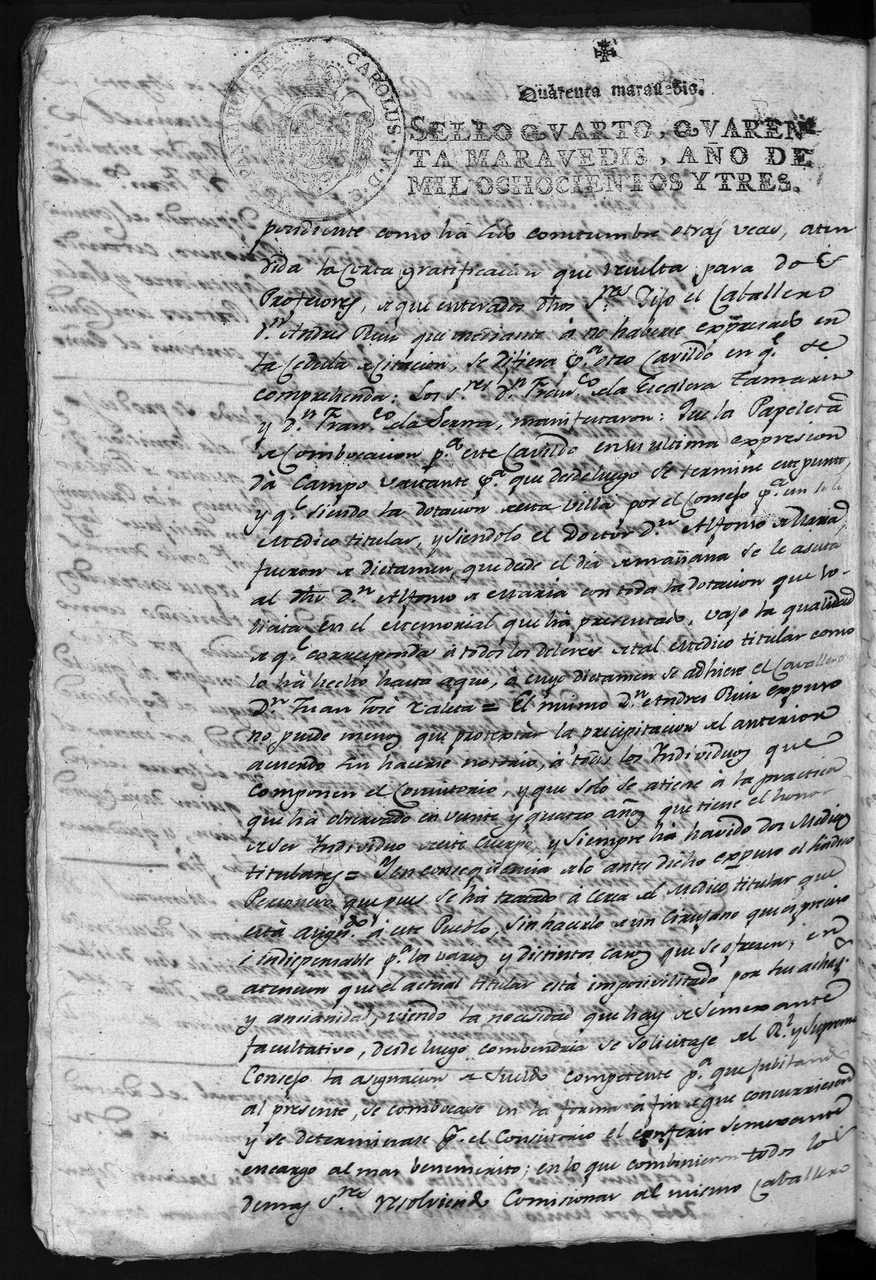 CAROLUS IV D G HISPANIAR REX
Quarenta maravedis.
SELLO QVARTO, QVAREN
TA MARAVEDIS, AÑO DE
MIL OCHOCIENTOS Y TRES.
pendiente como há sido comtumbre otras veces, aten
dida la corta gratificacion que resulta para dos
Profesores, a que enterados dhos sres Dijo el Caballero
Dn Andres Ruiz que mediante a no haberse expresado en
la Cedula de Citacion, se difiera pa otro Cavildo en qe se
comprehenda: Los sres Dn Franco de la Escalera Tamariz
y Dn Franco de la Serna, manifestaron: Que la Papeleta
de Combocacion pa este Cavildo en su ultima expresion
dá Campo vastante pa que desde luego se termine este punto,
y qe siendo la dotacion de esta Villa por el Consejo pa un solo
Medico titular, y siendolo el Doctor Dn Alfonso de Maria,
fueron de dictamen, que desde el dia de mañana se le acuda
al dho Dn Alfonso de Maria con toda la dotacion que so-
licita en el Memorial que há presentado, vajo la qualidad
de qe corresponda á todos los deberes de tal Medico titular como
lo há hecho hasta aqui, a cuyo dictamen se adhiere el Cavallero
Dn Juan José = El mismo Dn Andres Ruiz expuso
no puede menos que protextar la precipitacion del anterior
acuerdo sin hacerse notorio, á todos los Individuos que
componen el Consistorio, y que solo se atiene á la practica
que há observado en veinte y quatro años que tiene el honor
de ser Individuo de este Cuerpo, y siempre há havido dos Medicos
titulares = Y en conseqüencia de lo antes dicho expuso el sindico
Personero, que pues se há tratado á cerca del Medico titular que
está asigndo á este Pueblo, sin hacerlo de un Cirujano que es preciso
é indispensable pa los varios y distintos casos que se ofrecen; en
atencion que el actual titular está imposivilitado por sus achaqs
y ancianidad, viendo la necesidad que hay de semexante
facultativo, desde luego combendria se solicitase del Rl y Supremo
Consejo la asignacion de sueldo competente pa que jubilando
al presente, se combocase en la forma á fin de que concurriesen
y se determinase pr el Consistorio el conferir semexante
encargo al mas benemerito; en lo que combinieron todos los
demas sres resolviendo Comisionar al mismo Caballero